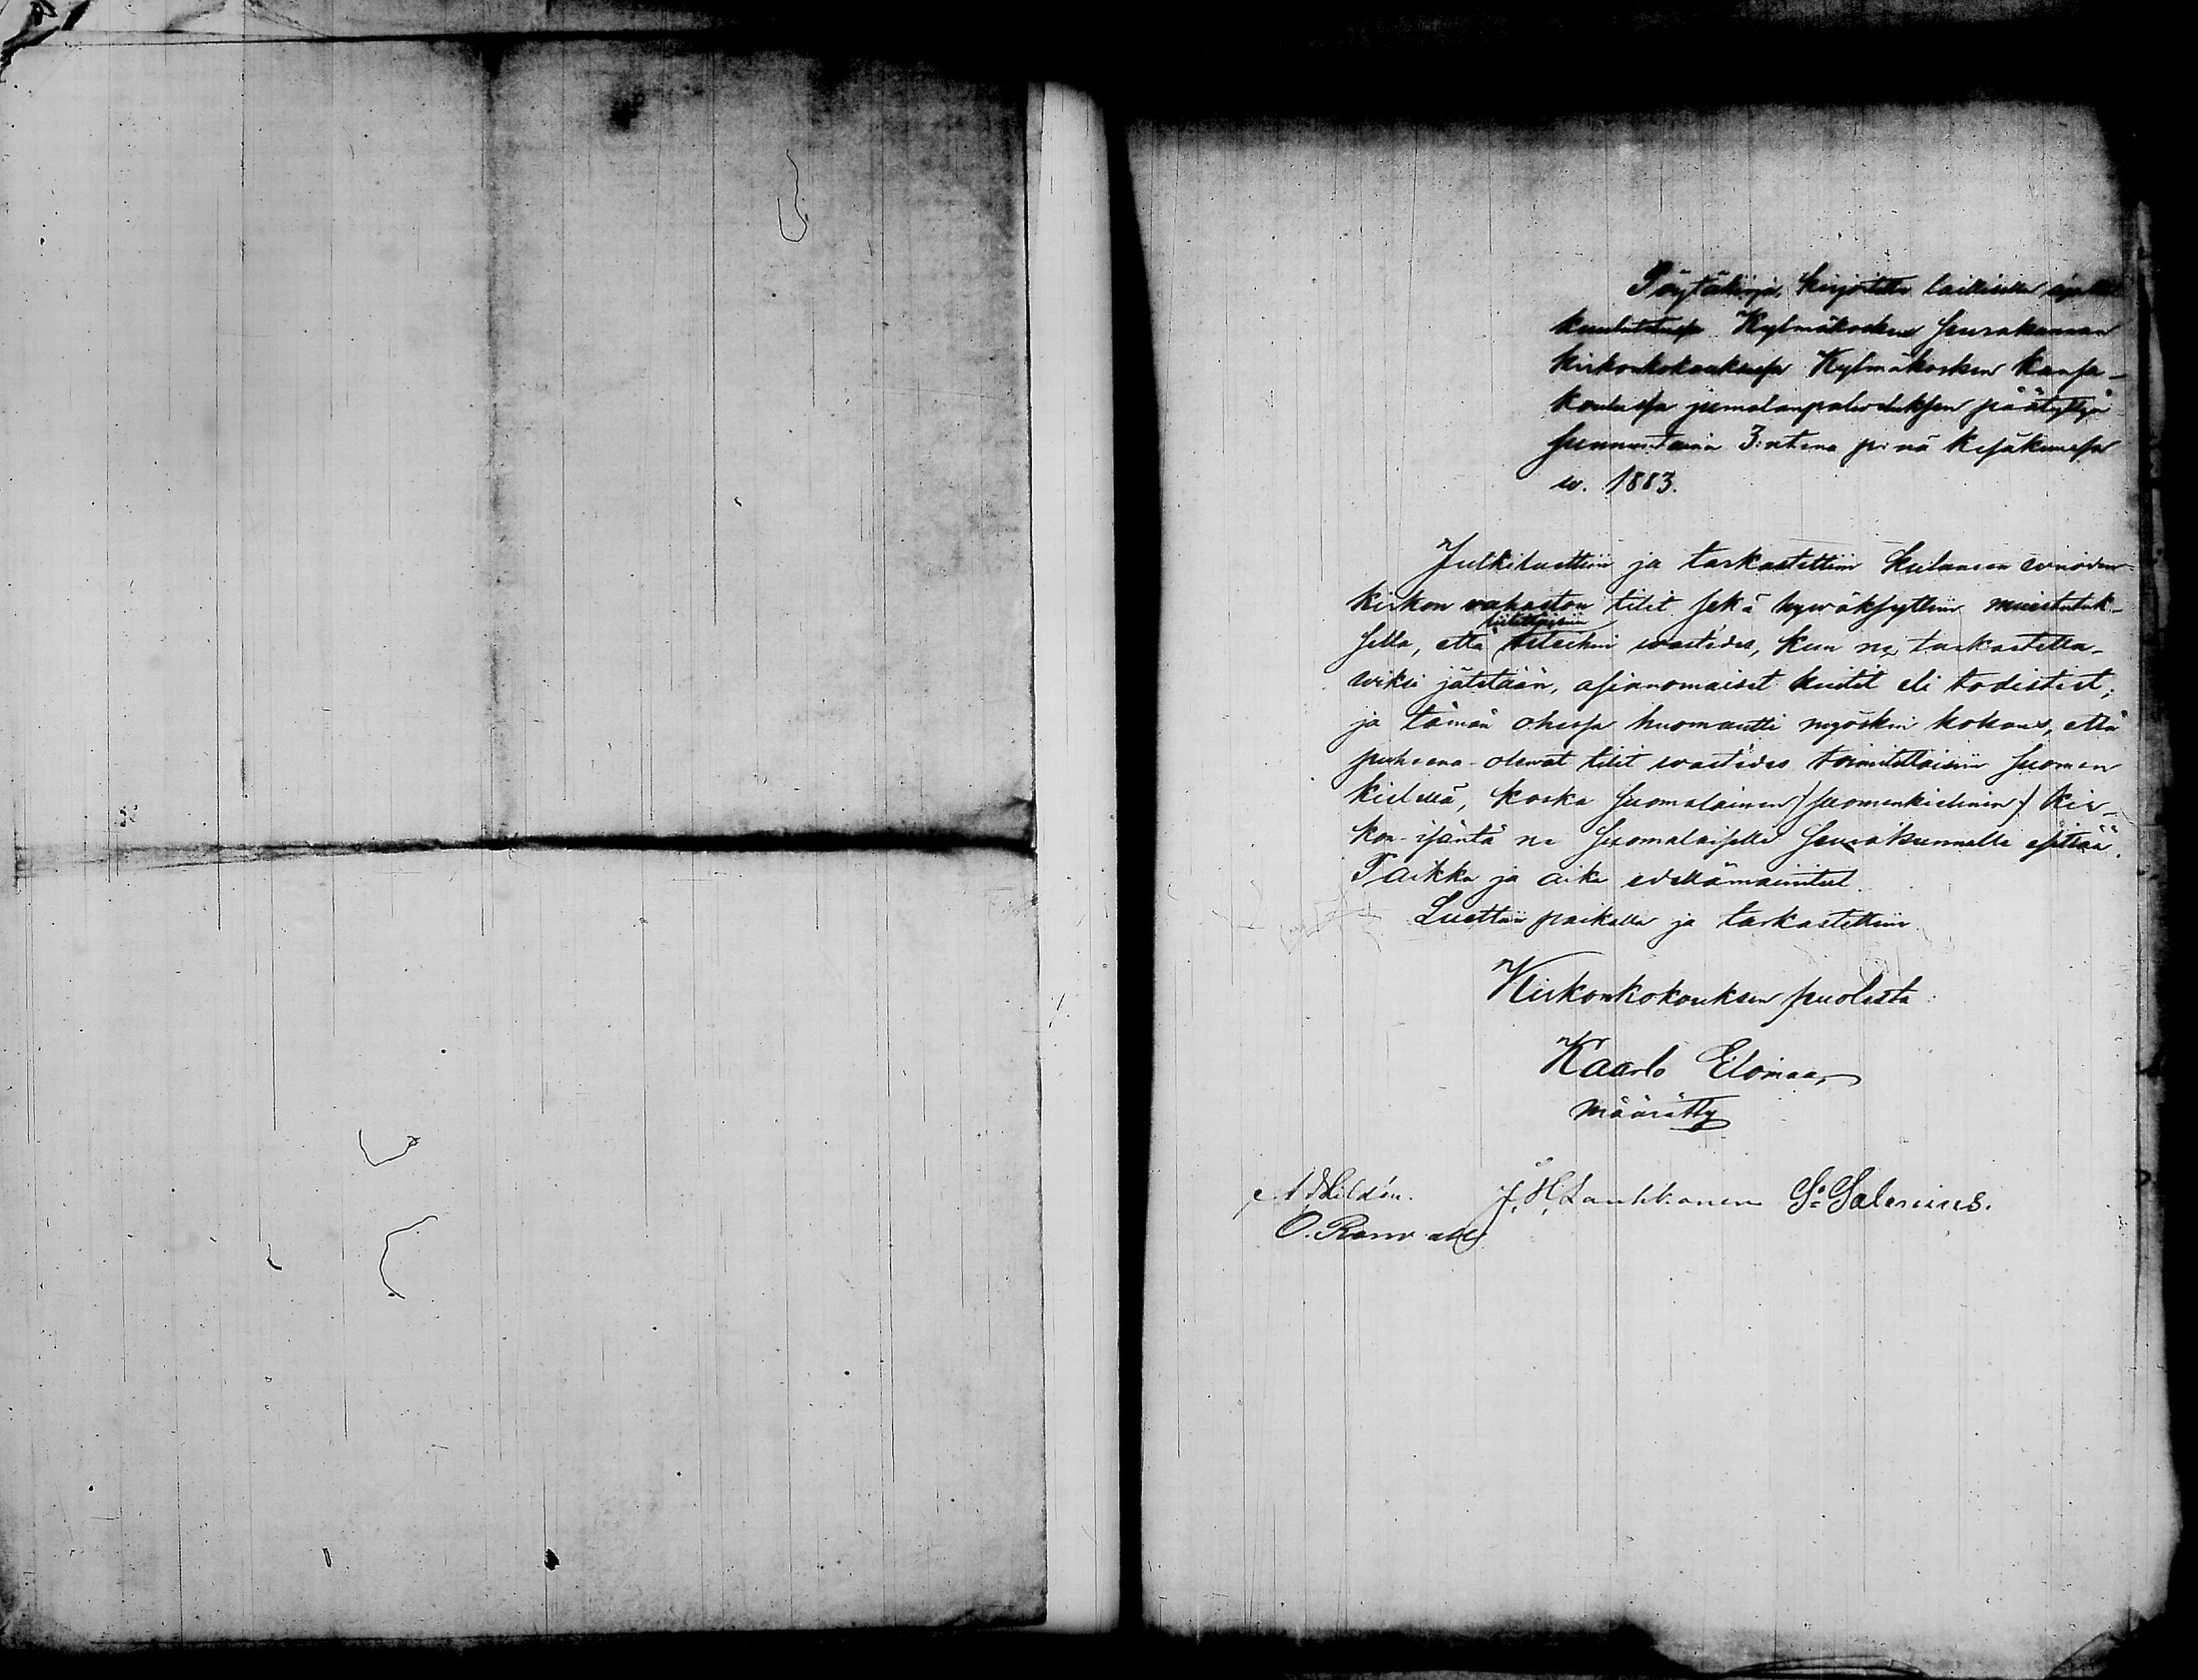 Pöytäkirja, kirjoitettu laillisella
kuulutetussa Kylmäkosken seurakunnan
kirkonkokouksessa Kylmäkosken kansa-
koulussa jumalanpalveluksen päätyttyä
sunnuntaina 3:ntena p:nä kesäkuussa
w. 1883.
Julkiluettiin ja tarkastettiin kuluneen vuoden
kirkon rahaston tilit sekä hywäksyttiin muistutuk-
sella, että liitettäisiin tileihin wastedes, kun ne tarkastetta-
wiksi jätetään, asianomaiset kuitit eli todisteet;
ja tämän ohessa huomautti myöskin kokous, että
puheena-olewat tilit wastedes toimitettaisiin suomen
kielellä, koska suomalainen /:suomenkielinen:/ kir-
kon-isäntä ne suomalaiselle seurakunnalle esittää.
Paikka ja aika edellämainitut.
Luettiin paikalla ja tarkastettiin.
Kirkonkokouksen puolesta:
Kaarlo Elomaa,
määrätty
A Hildén. J. H. Laukkanen S. Salenius.
O.